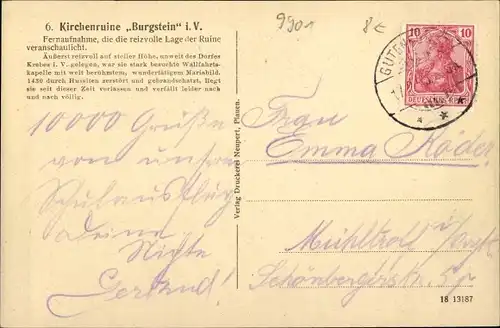 9901
8€
6. Kirchenruine „Burgstein" i. V.
Fernaufnahme, die die reizvolle Lage der Ruine
veranschaulicht.
Äußerst reizvoll auf steiler Höhe, unweit des Dorfes
Krebes i. V. gelegen, war sie stark besuchte Wallfahrts-
kapelle mit weit berühmtem, wundertätigem Mariabild.
1430 durch Hussiten zerstört und gebrandschatzt, liegt
sie seit dieser Zeit verlassen und verfällt leider nach
und nach völlig.
10 10
DEUTSCHES REICH
GUTEN
10000 Grüße
von unserm
Schulausflug
Deine
Nichte
Gertrud!
Verlag Druckerei Neupert, Plauen.
Frau
Emma Röder
Mühltroff i/Vogtl
Schönbergerstr.
18 13187